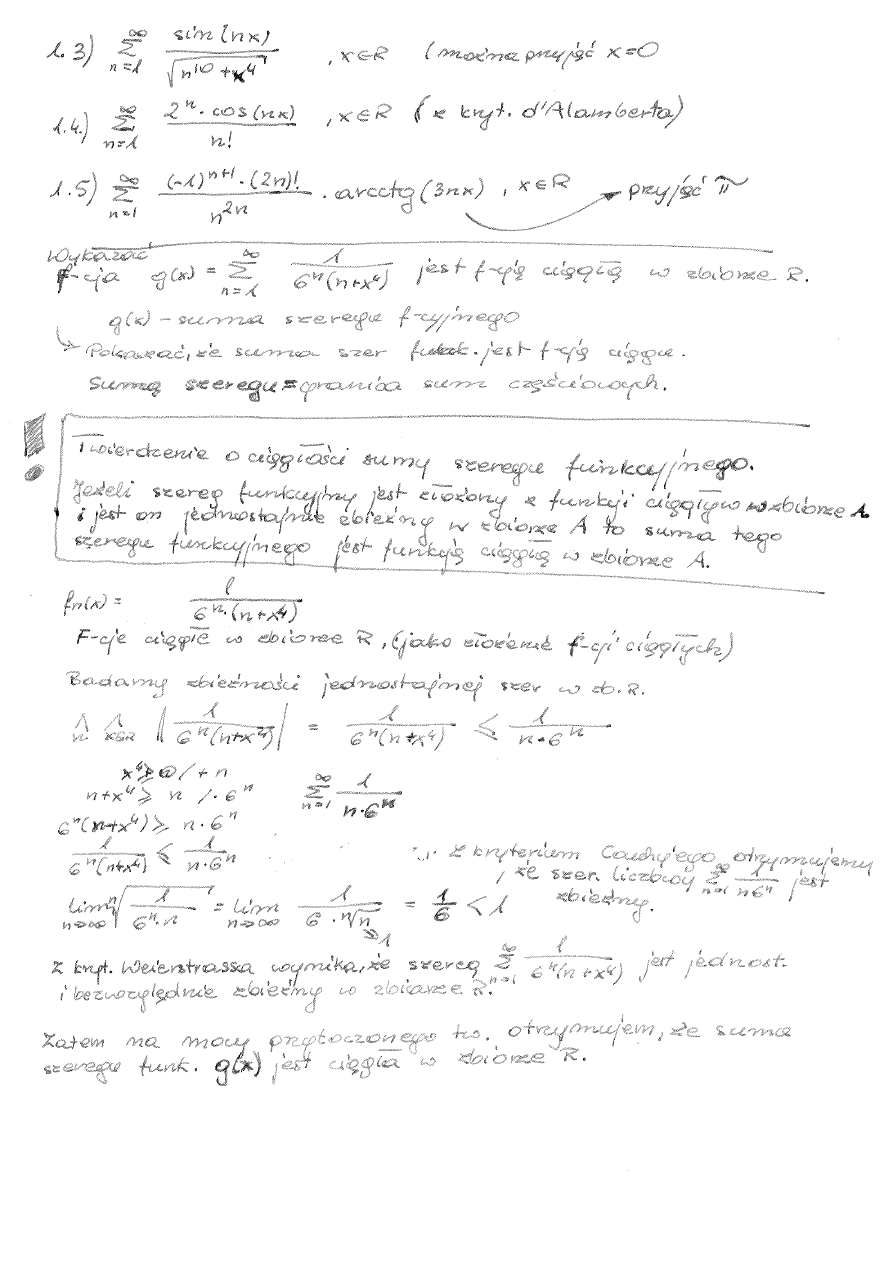 1.3) ∑_{n=1}^{∞} sin(nx) / √(n^10 + x^4) , x∈R (można przyjść x=0
1.4.) ∑_{n=1}^{∞} 2^n · cos(nx) / n! , x∈R (z kryt. d'Alamberta)
1.5) ∑_{n=1}^{∞} (-1)^{n+1} · (2n)! / n^{2n} · arcctg(3nx) , x∈R → przyjść π
Wykazać
f-cja g(x) = ∑_{n=1}^{∞} 1 / 6^n(n+x^4) jest f-cją ciągłą w zbiorze R.
g(x) – suma szeregu f-cyjnego
↳ Pokazać, że suma szer funk. jest f-cją ciągłą.
Sumą szeregu = granica sum częściowych.
Twierdzenie o ciągłości sumy szeregu funkcyjnego.
Jeżeli szereg funkcyjny jest złożony z funkcji ciągływ w zbiorze A
i jest on jednostajnie zbieżny w zbiorze A to suma tego
szeregu funkcyjnego jest funkcją ciągłą w zbiorze A.
fn(x) = 1 / 6^n·(n+x^4)
F-cje ciągłe w zbiorze R, (jako złożenie f-cji ciągłych)
Badamy zbieżności jednostajnej szer w zb. R.
⋀_n ⋀_{x∈R} | 1 / 6^n(n+x^4) | = 1 / 6^n(n+x^4) ≤ 1 / n·6^n
x^4 ≥ 0 / + n
n+x^4 ≥ n / · 6^n ∑_{n=1}^{∞} 1 / n·6^n
6^n(n+x^4) ≥ n·6^n
1 / 6^n(n+x^4) ≤ 1 / n·6^n
Z kryterium Cauchy'ego otrzymujemy
, że szer. liczbowy ∑_{n=1}^{∞} 1 / n6^n jest
zbieżny.
lim_{n→∞} ⁿ√(1 / 6^n·n) = lim_{n→∞} 1 / 6·ⁿ√n = 1/6 < 1
↘1
Z kryt. Weierstrassa wynika, że szereg ∑_{n=1}^{∞} 1 / 6^n(n+x^4) jest jednost.
i bezwzględnie zbieżny w zbiorze R.
Zatem na mocy przytoczonego tw. otrzymujem, że suma
szeregu funk. g(x) jest ciągła w zbiorze R.